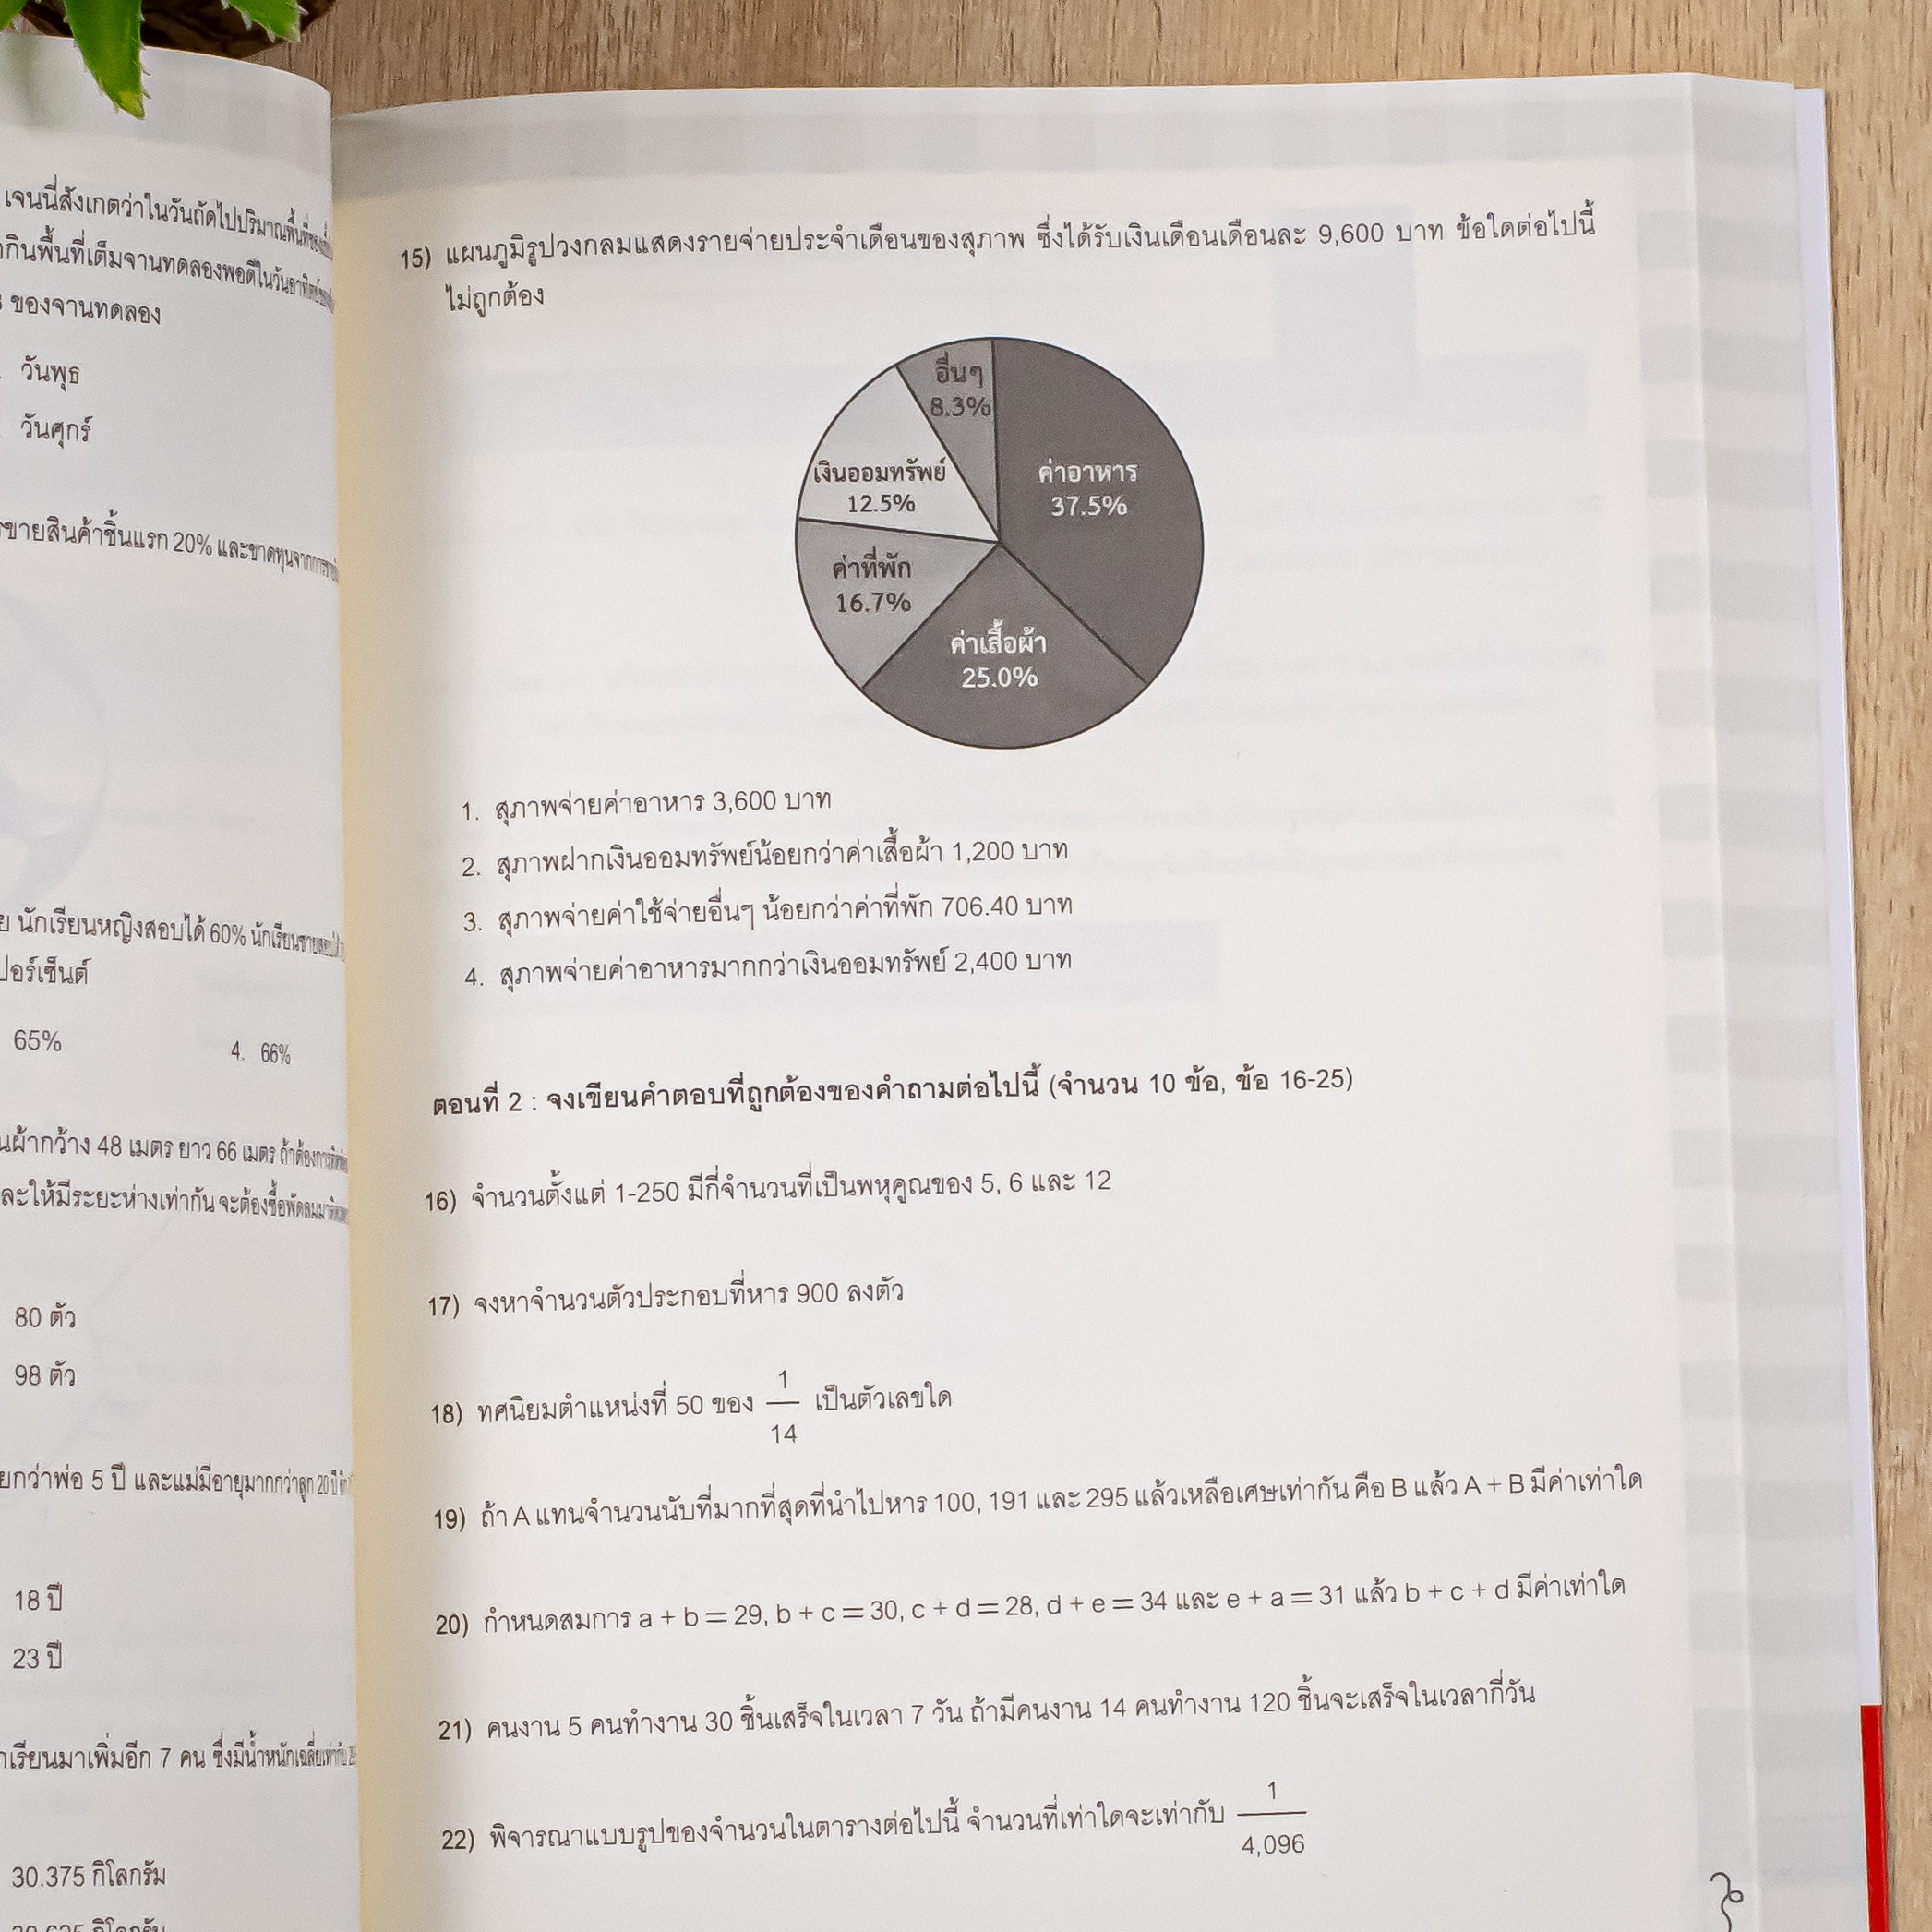 เจนนี่สังเกตว่าในวันถัดไปปริมาณพื้นที่ของ
กินพื้นที่เต็มจานทดลองพอดีในวันอาทิตย์
ของจานทดลอง
วันพุธ
วันศุกร์
ขายสินค้าชิ้นแรก 20% และขาดทุนจากการขาย
นักเรียนหญิงสอบได้ 60% นักเรียนชายสอบได้
ปอร์เซ็นต์
65% 4. 66%
ผ้ากว้าง 48 เมตร ยาว 66 เมตร ถ้าต้องการ
ละให้มีระยะห่างเท่ากัน จะต้องซื้อพัดลมมา
80 ตัว
98 ตัว
ยกว่าพ่อ 5 ปี และแม่มีอายุมากกว่าลูก 20 ปี
18 ปี
23 ปี
เรียนมาเพิ่มอีก 7 คน ซึ่งมีน้ำหนักเฉลี่ยเท่ากับ
30.375 กิโลกรัม
15) แผนภูมิรูปวงกลมแสดงรายจ่ายประจำเดือนของสุภาพ ซึ่งได้รับเงินเดือนเดือนละ 9,600 บาท ข้อใดต่อไปนี้
ไม่ถูกต้อง
อื่นๆ
8.3%
ค่าอาหาร
37.5%
เงินออมทรัพย์
12.5%
ค่าที่พัก
16.7%
ค่าเสื้อผ้า
25.0%
1. สุภาพจ่ายค่าอาหาร 3,600 บาท
2. สุภาพฝากเงินออมทรัพย์น้อยกว่าค่าเสื้อผ้า 1,200 บาท
3. สุภาพจ่ายค่าใช้จ่ายอื่นๆ น้อยกว่าค่าที่พัก 706.40 บาท
4. สุภาพจ่ายค่าอาหารมากกว่าเงินออมทรัพย์ 2,400 บาท
ตอนที่ 2 : จงเขียนคำตอบที่ถูกต้องของคำถามต่อไปนี้ (จำนวน 10 ข้อ, ข้อ 16-25)
16) จำนวนตั้งแต่ 1-250 มีกี่จำนวนที่เป็นพหุคูณของ 5, 6 และ 12
17) จงหาจำนวนตัวประกอบที่หาร 900 ลงตัว
18) ทศนิยมตำแหน่งที่ 50 ของ 1/14 เป็นตัวเลขใด
19) ถ้า A แทนจำนวนนับที่มากที่สุดที่นำไปหาร 100, 191 และ 295 แล้วเหลือเศษเท่ากัน คือ B แล้ว A + B มีค่าเท่าใด
20) กำหนดสมการ a + b = 29, b + c = 30, c + d = 28, d + e = 34 และ e + a = 31 แล้ว b + c + d มีค่าเท่าใด
21) คนงาน 5 คนทำงาน 30 ชิ้นเสร็จในเวลา 7 วัน ถ้ามีคนงาน 14 คนทำงาน 120 ชิ้นจะเสร็จในเวลากี่วัน
22) พิจารณาแบบรูปของจำนวนในตารางต่อไปนี้ จำนวนที่เท่าใดจะเท่ากับ 1/4,096